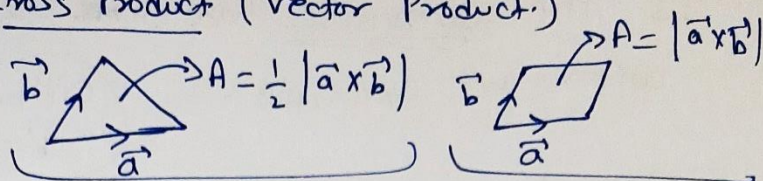 Cross Product (Vector Product.)
b⃗ A = ½ |a⃗ × b⃗|
a⃗
b⃗ A = |a⃗ × b⃗|
a⃗